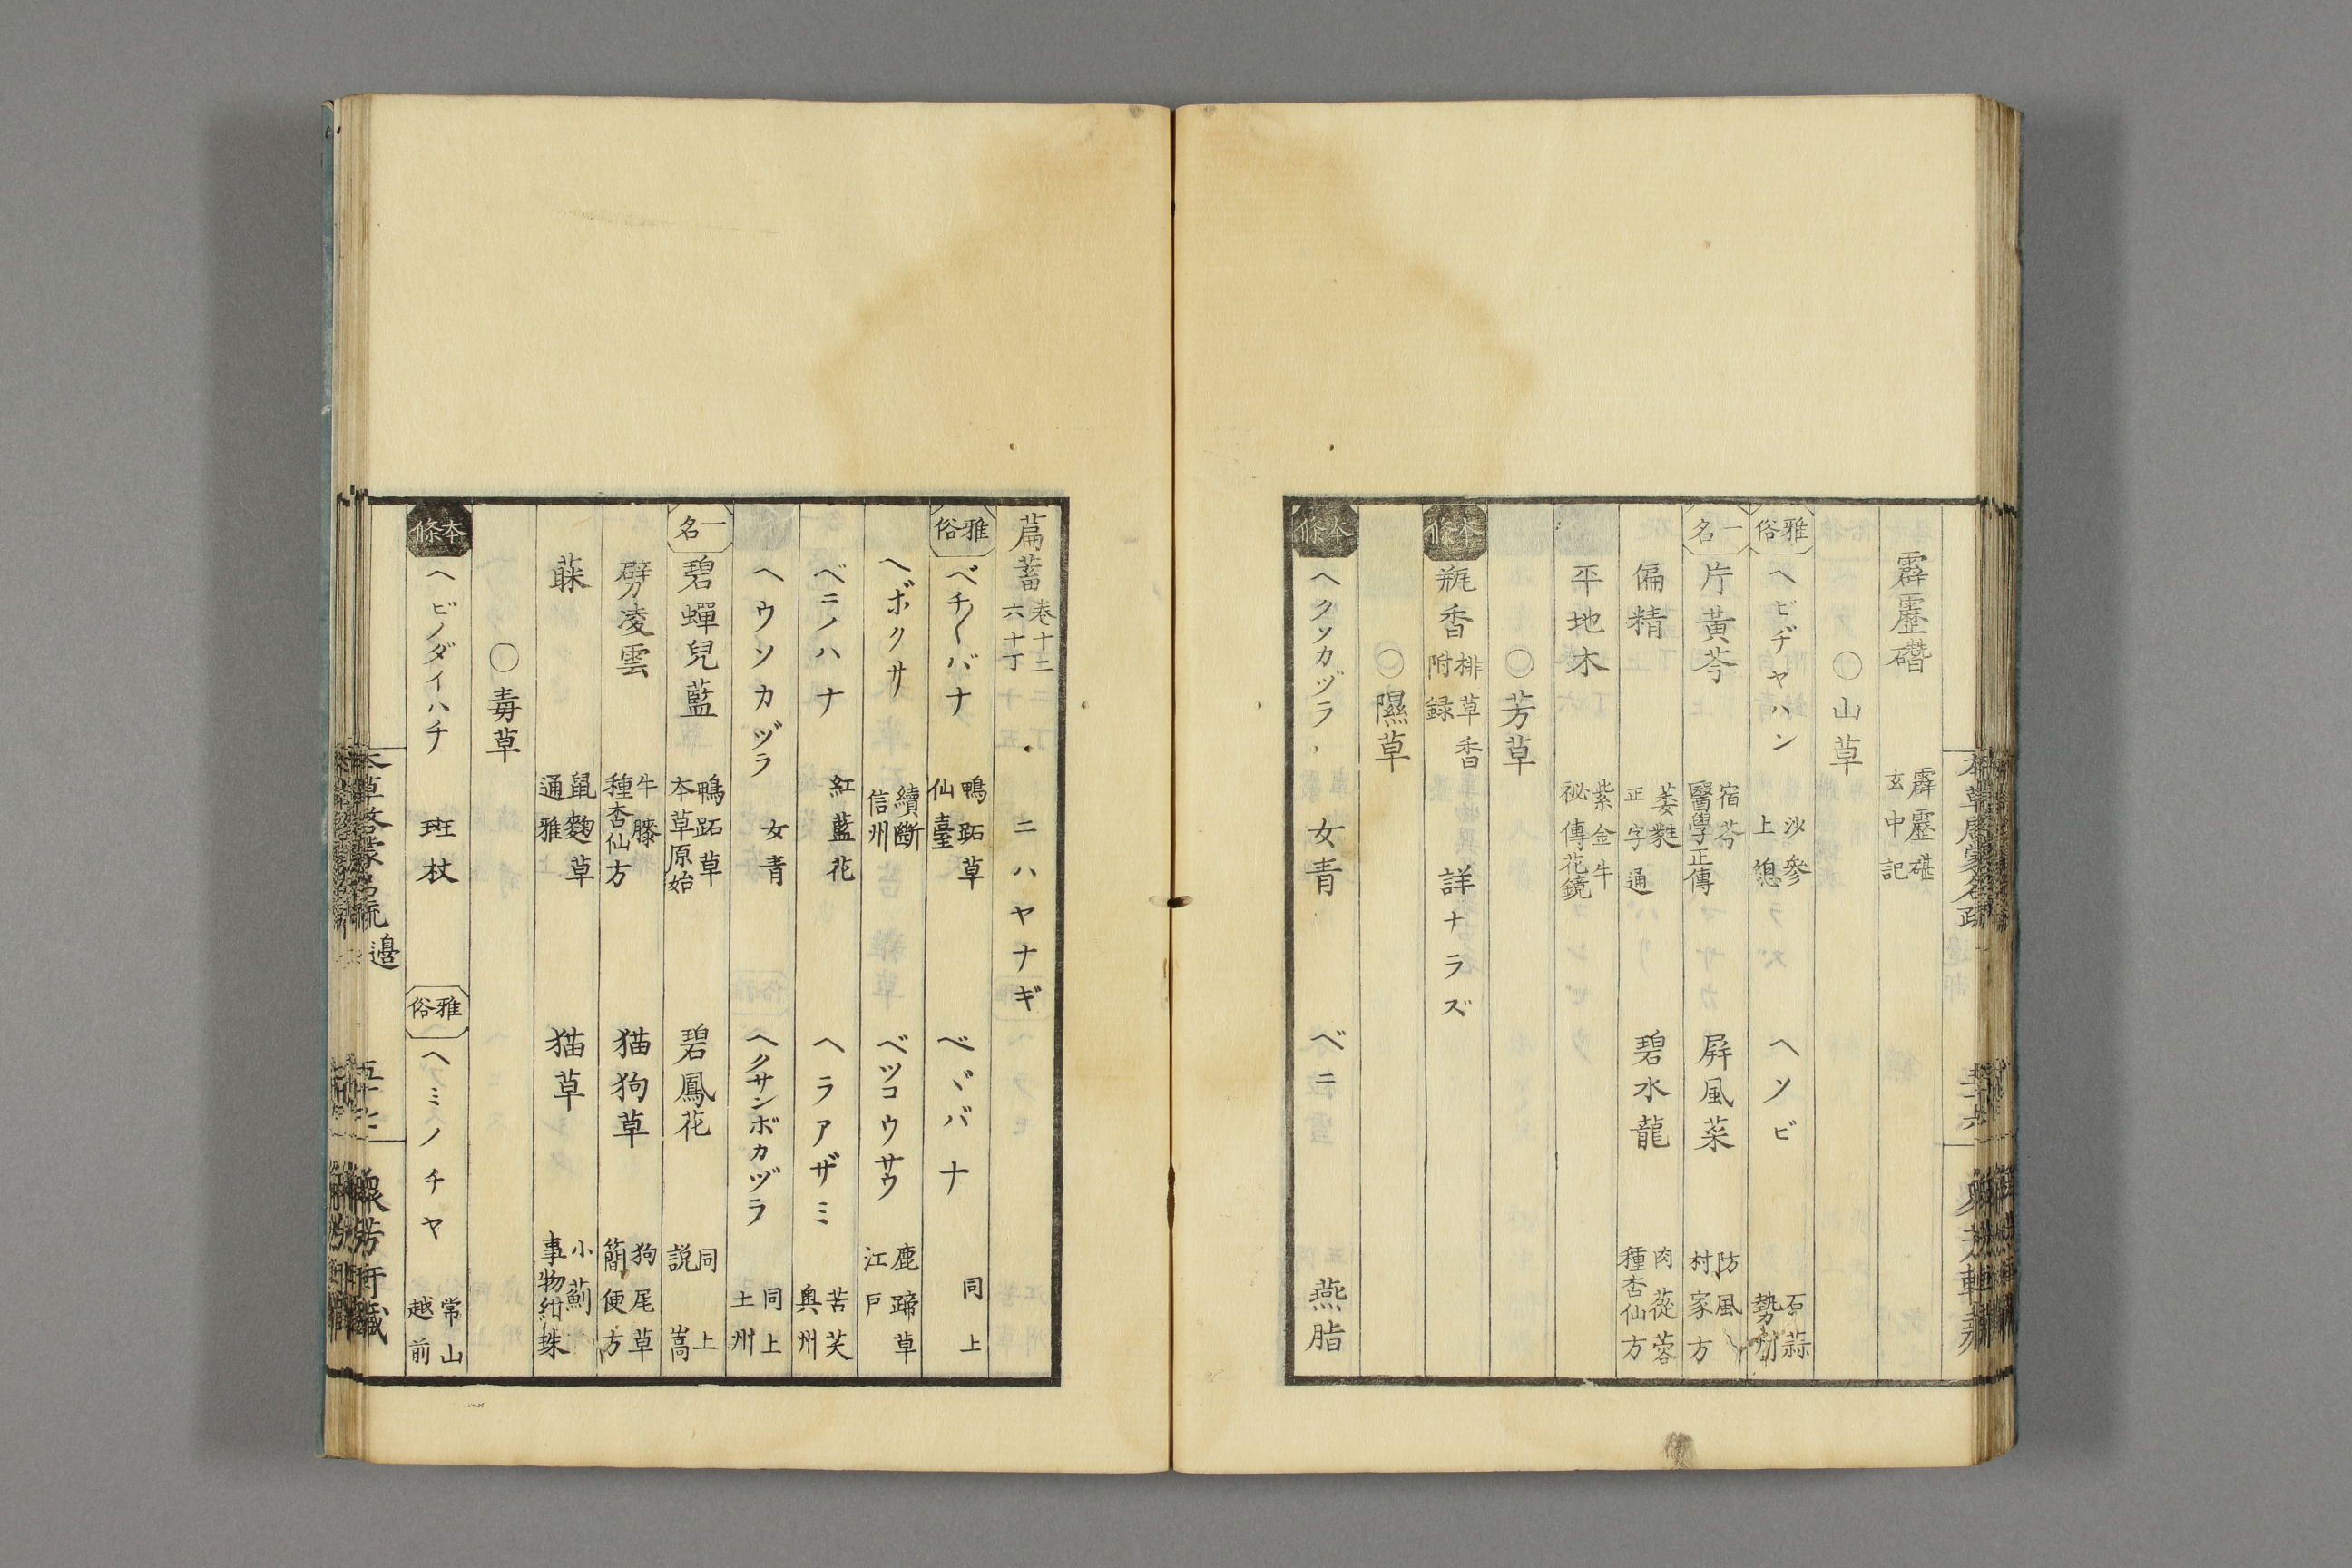 霹靂䃮 霹靂碪 玄中記
○山草
雅俗 ヘビヂヤハン 沙參 上總 ヘソビ 石蒜 勢州
一名 片黃芩 宿芩 醫學正傳 屏風菜 防風 村家方
偏精 萎蕤 正字通 碧水龍 肉蓯蓉 種杏仙方
平地木 紫金牛 祕傳花鏡
○芳草
本條 瓶香 排草香附録 詳ナラズ
○隰草
本條 ヘクソカヅラ 女青 ベニ 燕脂
萹蓄 卷十二 六十丁 ニハヤナギ
雅俗 ベチ〳〵バナ 鴨跖草 仙臺 ベヾバナ 同上
ヘボクサ 續斷 信州 ベツコウサウ 鹿蹄草 江戸
ベニノハナ 紅藍花 ヘラアザミ 苦芺 奥州
ヘウソカヅラ 女青 ヘクサンボカヅラ 同上 土州
一名 碧蟬兒藍 鴨跖草 本草原始 碧鳳花 同上 説嵩
劈凌雲 牛膝 種杏仙方 猫狗草 狗尾草 簡便方
蕀 鼠麴草 通雅 猫草 小薊 事物紺珠
○毒草
本條 ヘビノダイハチ 斑杖 雅俗 ヘミノチヤ 常山 越前
本草啓蒙名疏 邉